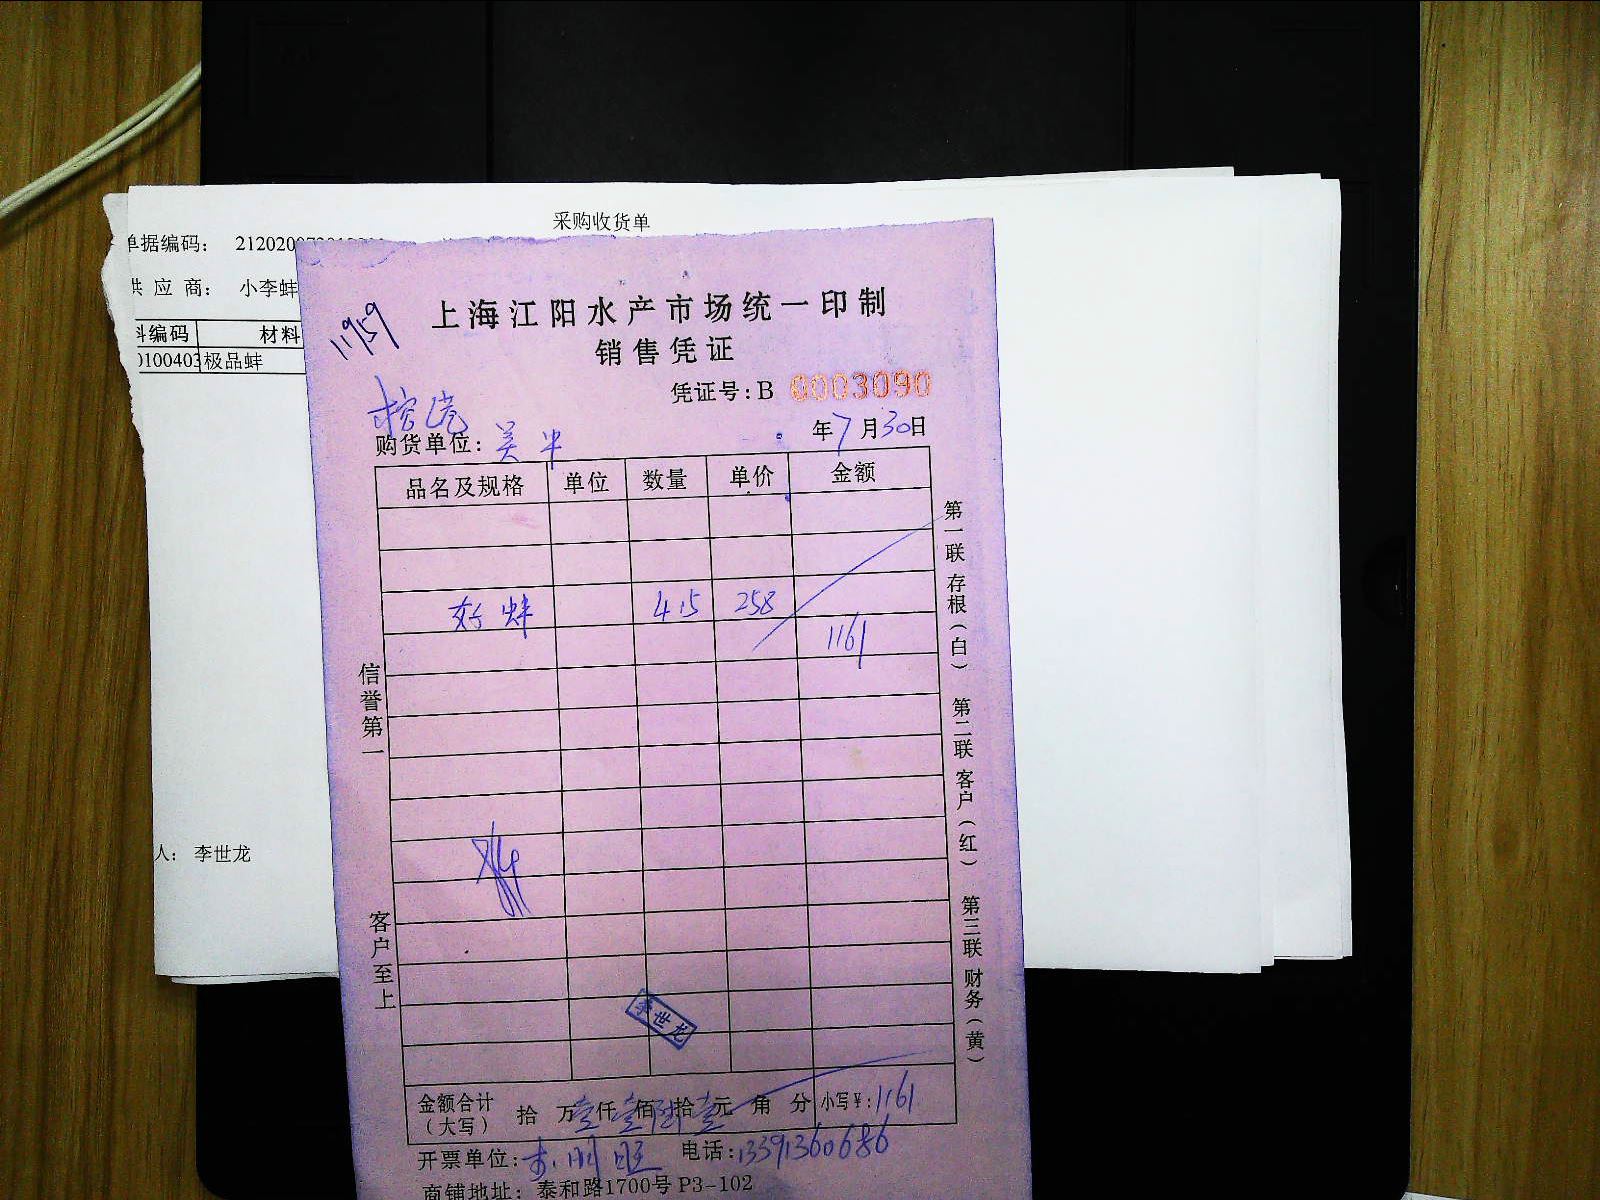 采购收货单
单据编码： 2120200
供 应 商： 小李蚌
料编码 材料
0100403 极品蚌
人： 李世龙
11959
上海江阳水产市场统一印制
销售凭证
凭证号：B 0003090
购货单位：
年7月30日
品名及规格 单位 数量 单价 金额
好蚌 415 258
1161
信誉第一
客户至上
第一联 存根（白） 第二联 客户（红） 第三联 财务（黄）
李世龙
金额合计（大写） 拾 万壹仟壹佰陆拾壹元 角 分 小写¥：1161
开票单位： 电话：13391360686
商铺地址：泰和路1700号 P3-102